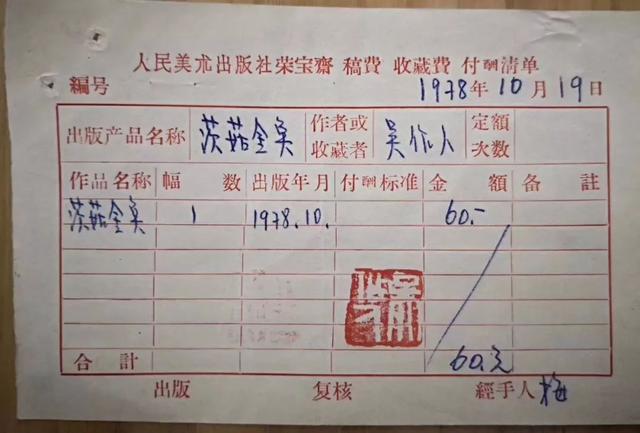 人民美朮出版社荣宝齋 稿費 收藏費 付酬清单
編号 1978年10月19日
出版产品名称 茨菇金臭 作者或收藏者 吴作人 定額次数
作品名称 幅数 出版年月 付酬标准 金額 备註
茨菇金臭 1 1978.10. 60.-
合計 60.元
出版 复核 經手人 梅